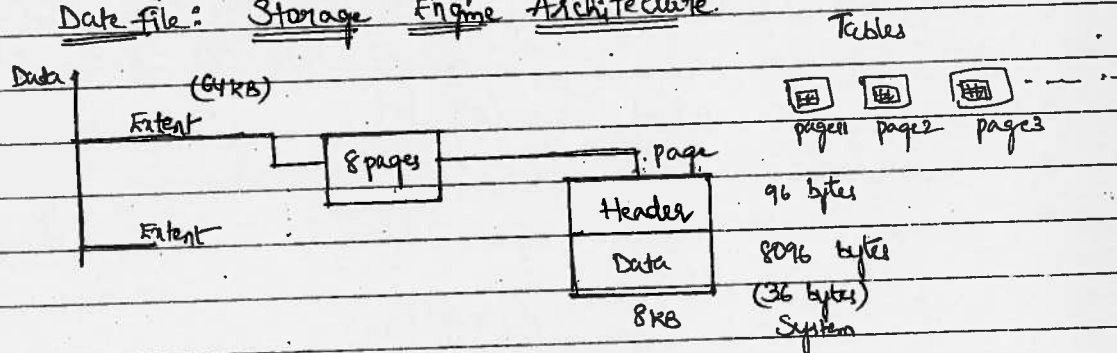 Data file: Storage Engine Architecture.
Tables
Data
(64KB)
Extent
page1 page2 page3
8 pages
page
Header
96 bytes
Extent
Data
8096 bytes
(36 bytes)
8KB
System